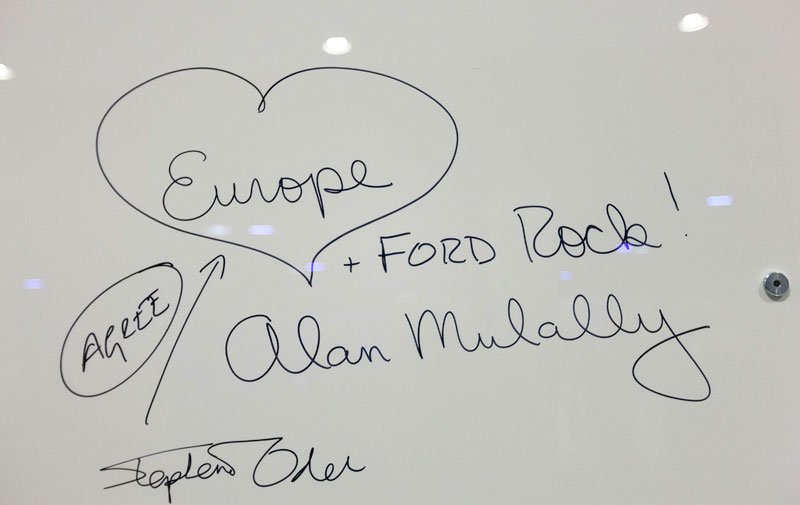 Europe
+ FORD Rock!
AGREE
Alan Mulally
Stephen Odell